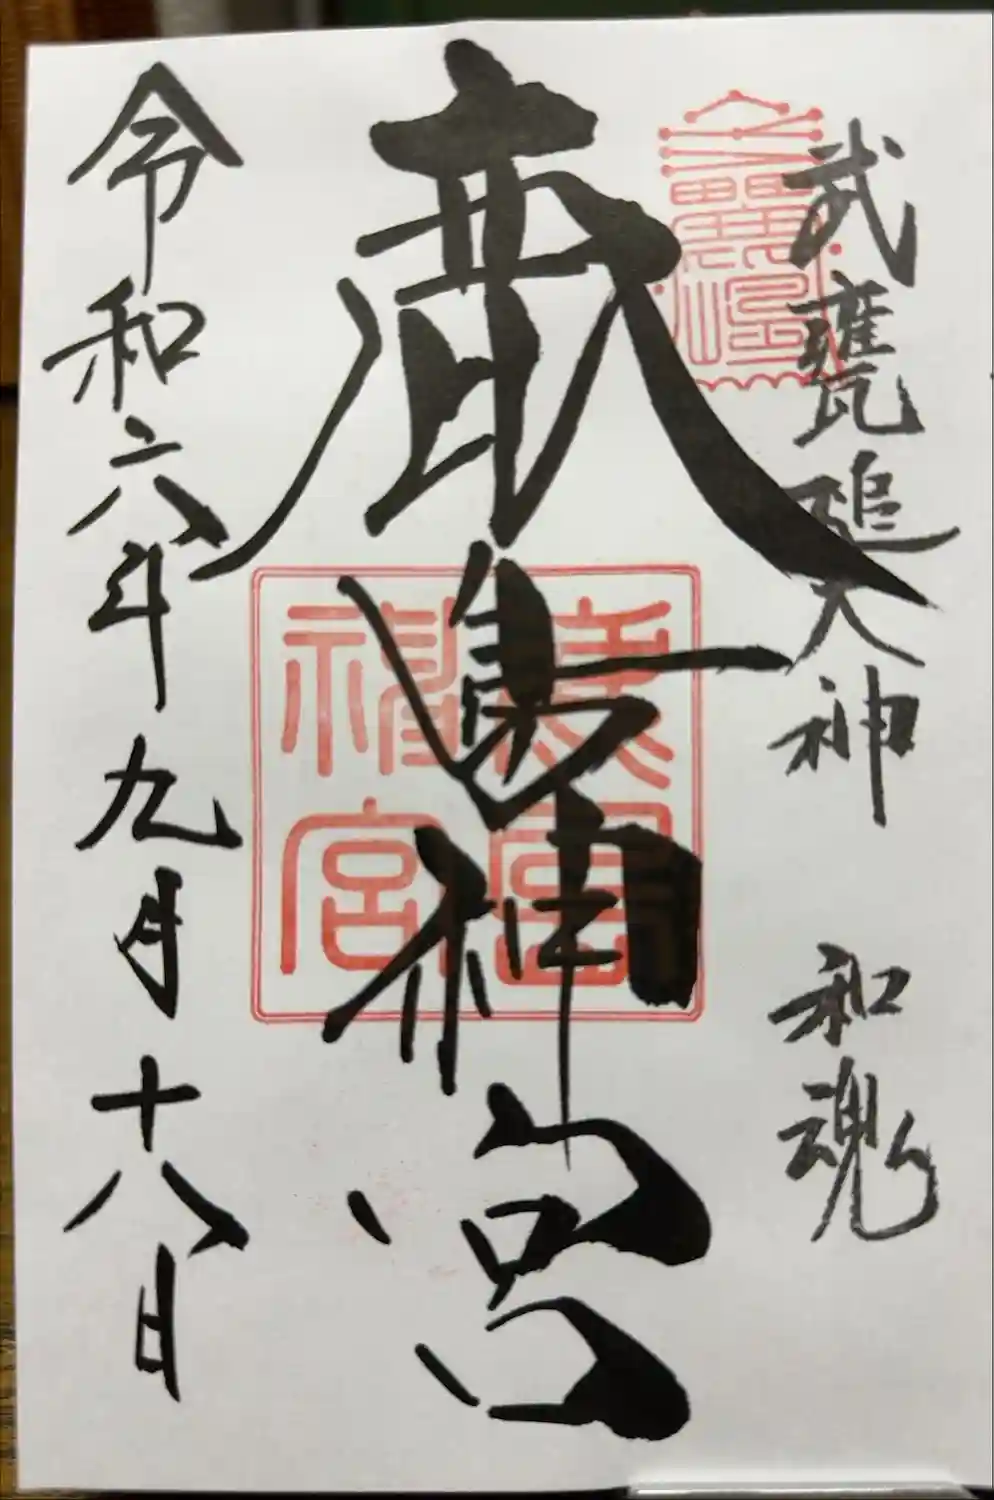 武甕槌大神 和魂
鹿島神宮
令和六年九月十八日